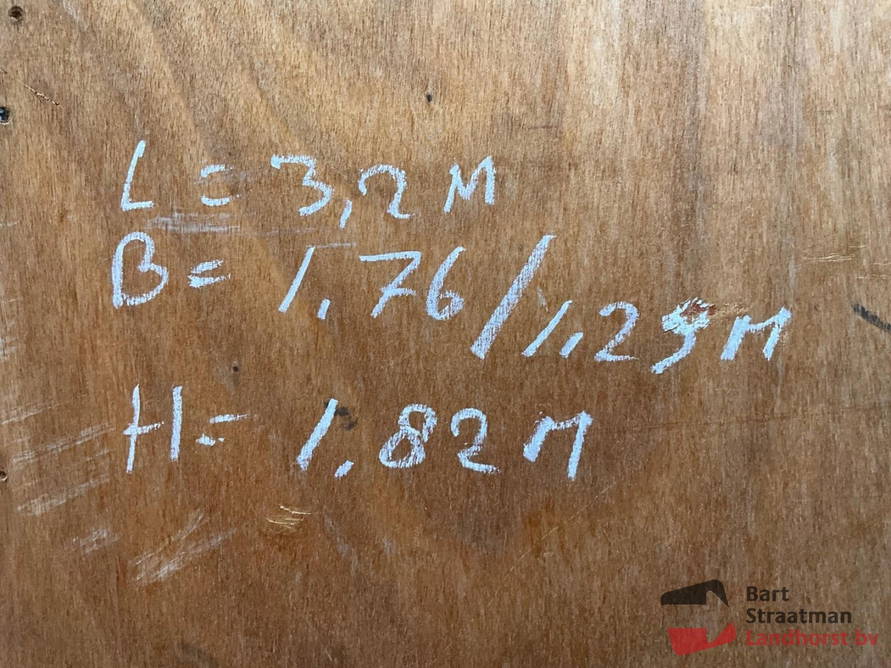 L = 3,2 M
B = 1,76 / 1,29 M
H = 1,82 M
Bart
Straatman
Lamthorst bv